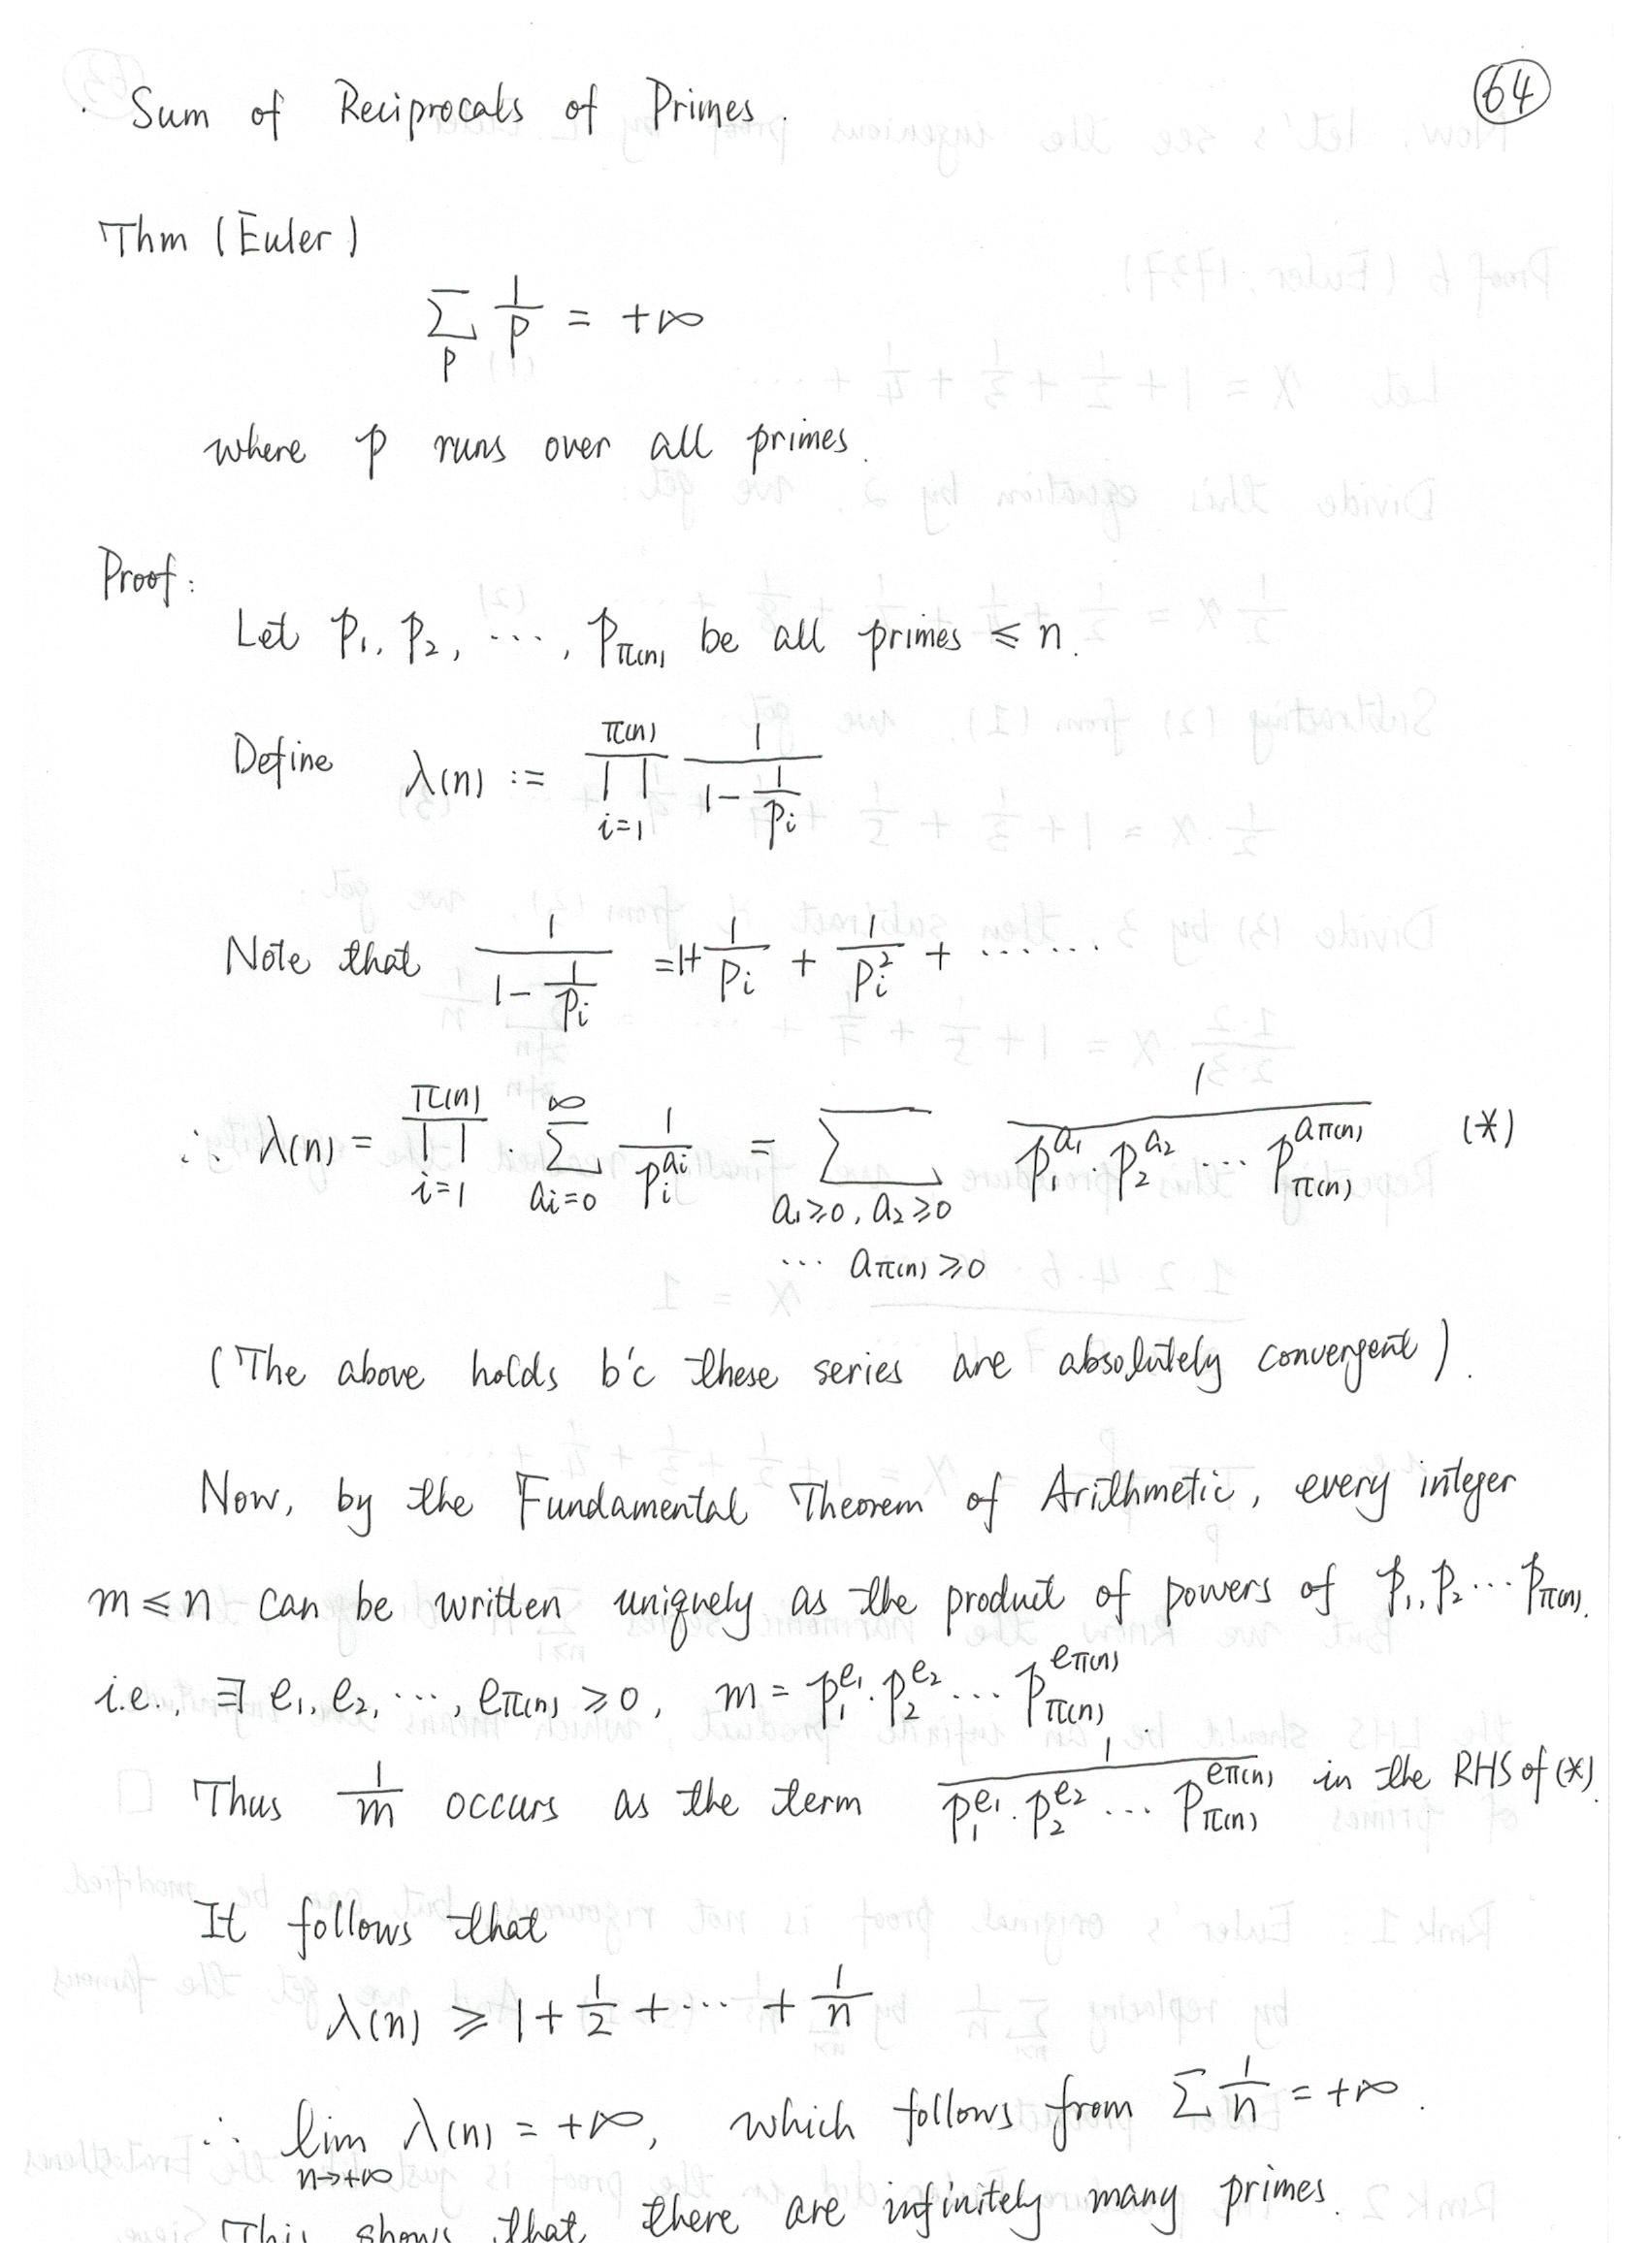 Sum of Reciprocals of Primes. 64
Thm (Euler)
∑_p 1/p = +∞
where p runs over all primes.
Proof:
Let p₁, p₂, ⋯, p_π(n) be all primes ≤ n.
Define λ(n) := ∏_{i=1}^{π(n)} 1/(1 - 1/p_i)
Note that 1/(1 - 1/p_i) = 1 + 1/p_i + 1/p_i² + ⋯⋯
∴ λ(n) = ∏_{i=1}^{π(n)} · ∑_{a_i=0}^{∞} 1/p_i^{a_i} = ∑_{a₁≥0, a₂≥0 ⋯ a_π(n)≥0} 1/(p₁^{a₁} · p₂^{a₂} ⋯ p_π(n)^{a_π(n)}) (*)
(The above holds b'c these series are absolutely convergent).
Now, by the Fundamental Theorem of Arithmetic, every integer
m ≤ n can be written uniquely as the product of powers of p₁, p₂ ⋯ p_π(n).
i.e., ∃ e₁, e₂, ⋯, e_π(n) ≥ 0, m = p₁^{e₁} · p₂^{e₂} ⋯ p_π(n)^{e_π(n)}.
Thus 1/m occurs as the term 1/(p₁^{e₁} · p₂^{e₂} ⋯ p_π(n)^{e_π(n)}) in the RHS of (*).
It follows that
λ(n) ≥ 1 + 1/2 + ⋯ + 1/n
∴ lim_{n→+∞} λ(n) = +∞, which follows from ∑ 1/n = +∞.
(This shows that there are infinitely many primes.